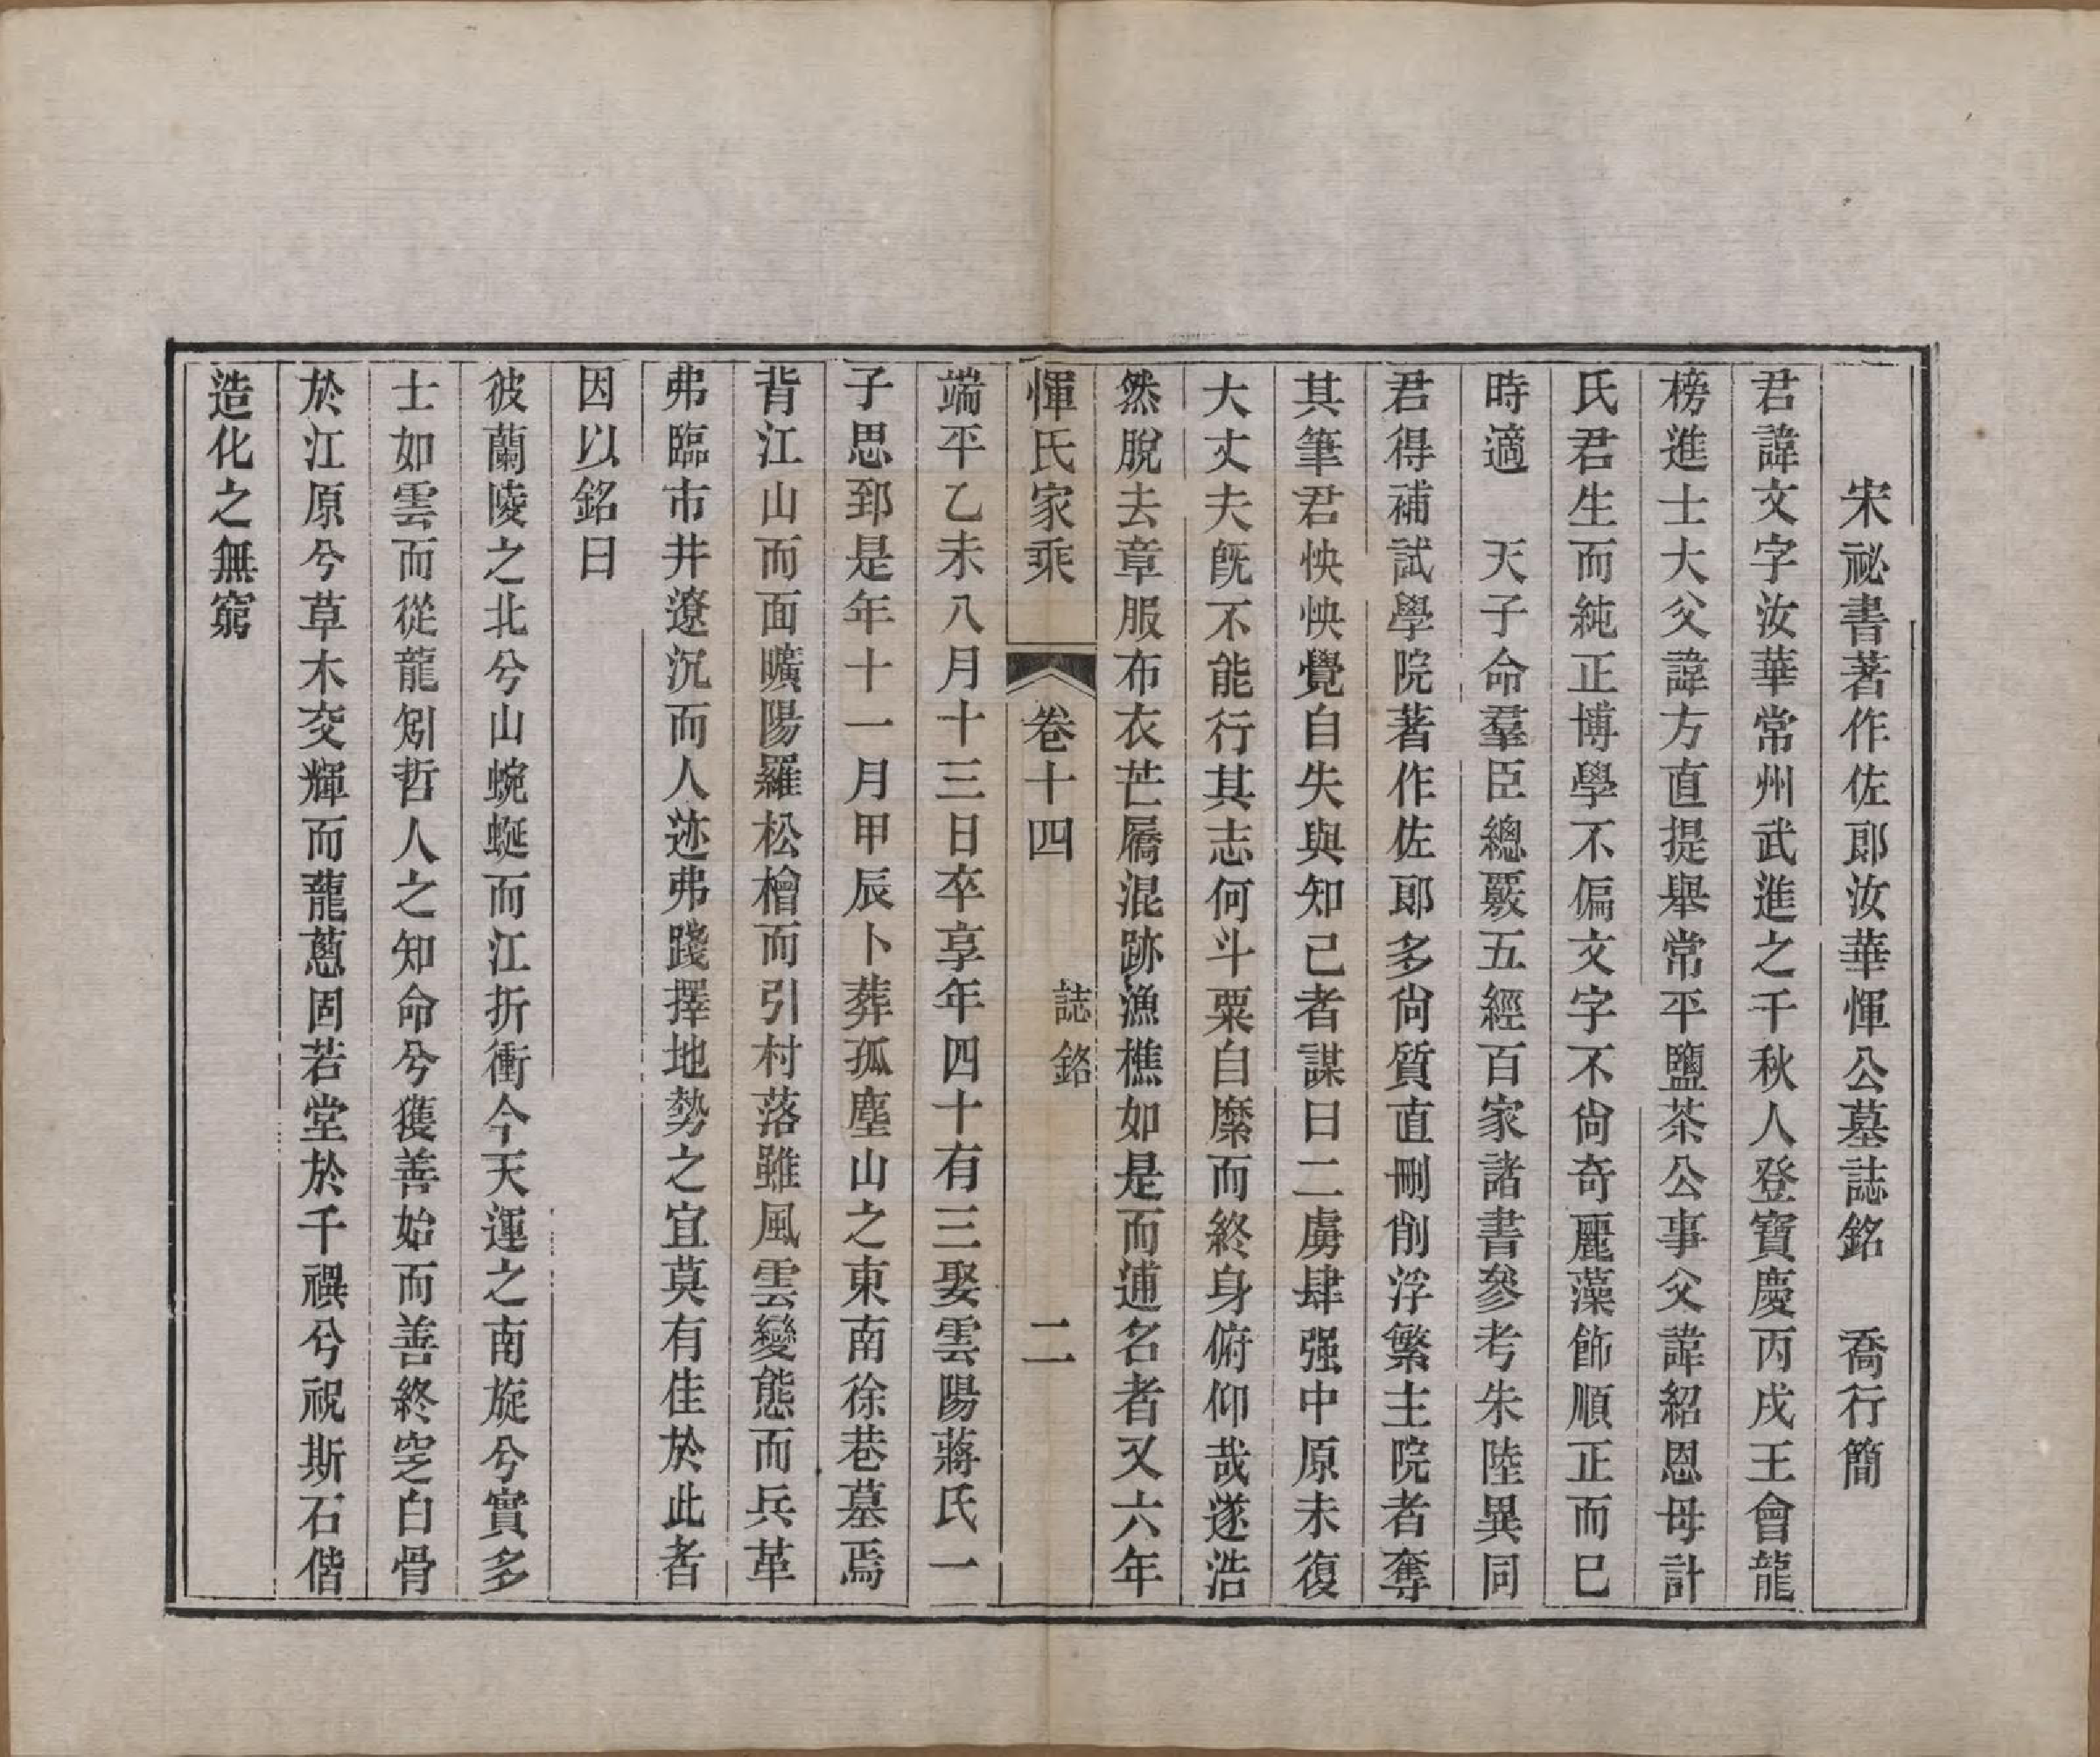 宋祕書著作佐郎汝華惲公墓誌銘　喬行簡
君諱文字汝華常州武進之千秋人登寶慶丙戌王會龍
榜進士大父諱方直提舉常平鹽茶公事父諱紹恩母計
氏君生而純正博學不偏文字不尙奇麗藻飾順正而已
時適　天子命羣臣總覈五經百家諸書參考朱陸異同
君得補試學院著作佐郎多尙質直刪削浮繁主院者奪
其筆君怏怏覺自失與知己者謀曰二虜肆强中原未復
大丈夫旣不能行其志何斗粟自縻而終身俯仰哉遂浩
然脫去章服布衣芒屩混跡漁樵如是而逋名者又六年
惲氏家乘　卷十四　誌銘　二
端平乙未八月十三日卒享年四十有三娶雲陽蔣氏一
子思郅是年十一月甲辰卜葬孤塵山之東南徐巷墓焉
背江山而面曠陽羅松檜而引村落雖風雲變態而兵革
弗臨市井遼沉而人迹弗踐擇地勢之宜莫有佳於此者
因以銘曰
彼蘭陵之北兮山蜿蜒而江折衝今天運之南旋兮實多
士如雲而從龍矧哲人之知命兮獲善始而善終窆白骨
於江原兮草木交輝而蘢蔥固若堂於千禩兮祝斯石偕
造化之無窮